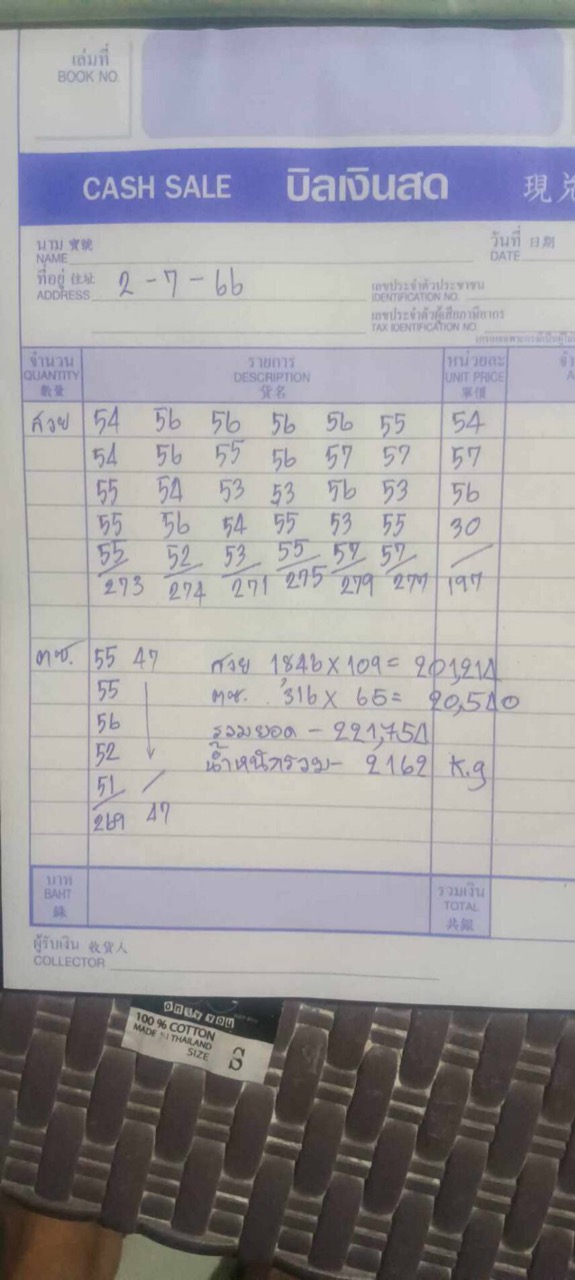 เล่มที่
BOOK NO.
CASH SALE บิลเงินสด 現兑
นาม 寶號
NAME
วันที่ 日期
DATE
ที่อยู่ 住址
ADDRESS 2-7-66
เลขประจำตัวประชาชน
IDENTIFICATION NO.
เลขประจำตัวผู้เสียภาษีอากร
TAX IDENTIFICATION NO.
จำนวน รายการ หน่วยละ
QUANTITY DESCRIPTION UNIT PRICE
數量 貨名 單價
สวย 54 56 56 56 56 55 54
54 56 55 56 57 57 57
55 54 53 53 56 53 56
55 56 54 55 53 55 30
55 52 53 55 57 57
273 274 271 275 279 277 197
ตซ. 55 47 สวย 1,846 x 109 = 201,214
55 ตซ. 316 x 65 = 20,540
56 รวมยอด - 221,754
52 น้ำหนักรวม - 2162 K.g
51
269 47
บาท รวมเงิน
BAHT TOTAL
銖 共銀
ผู้รับเงิน 收貨人
COLLECTOR
only you
100 % COTTON
MADE IN THAILAND
SIZE S